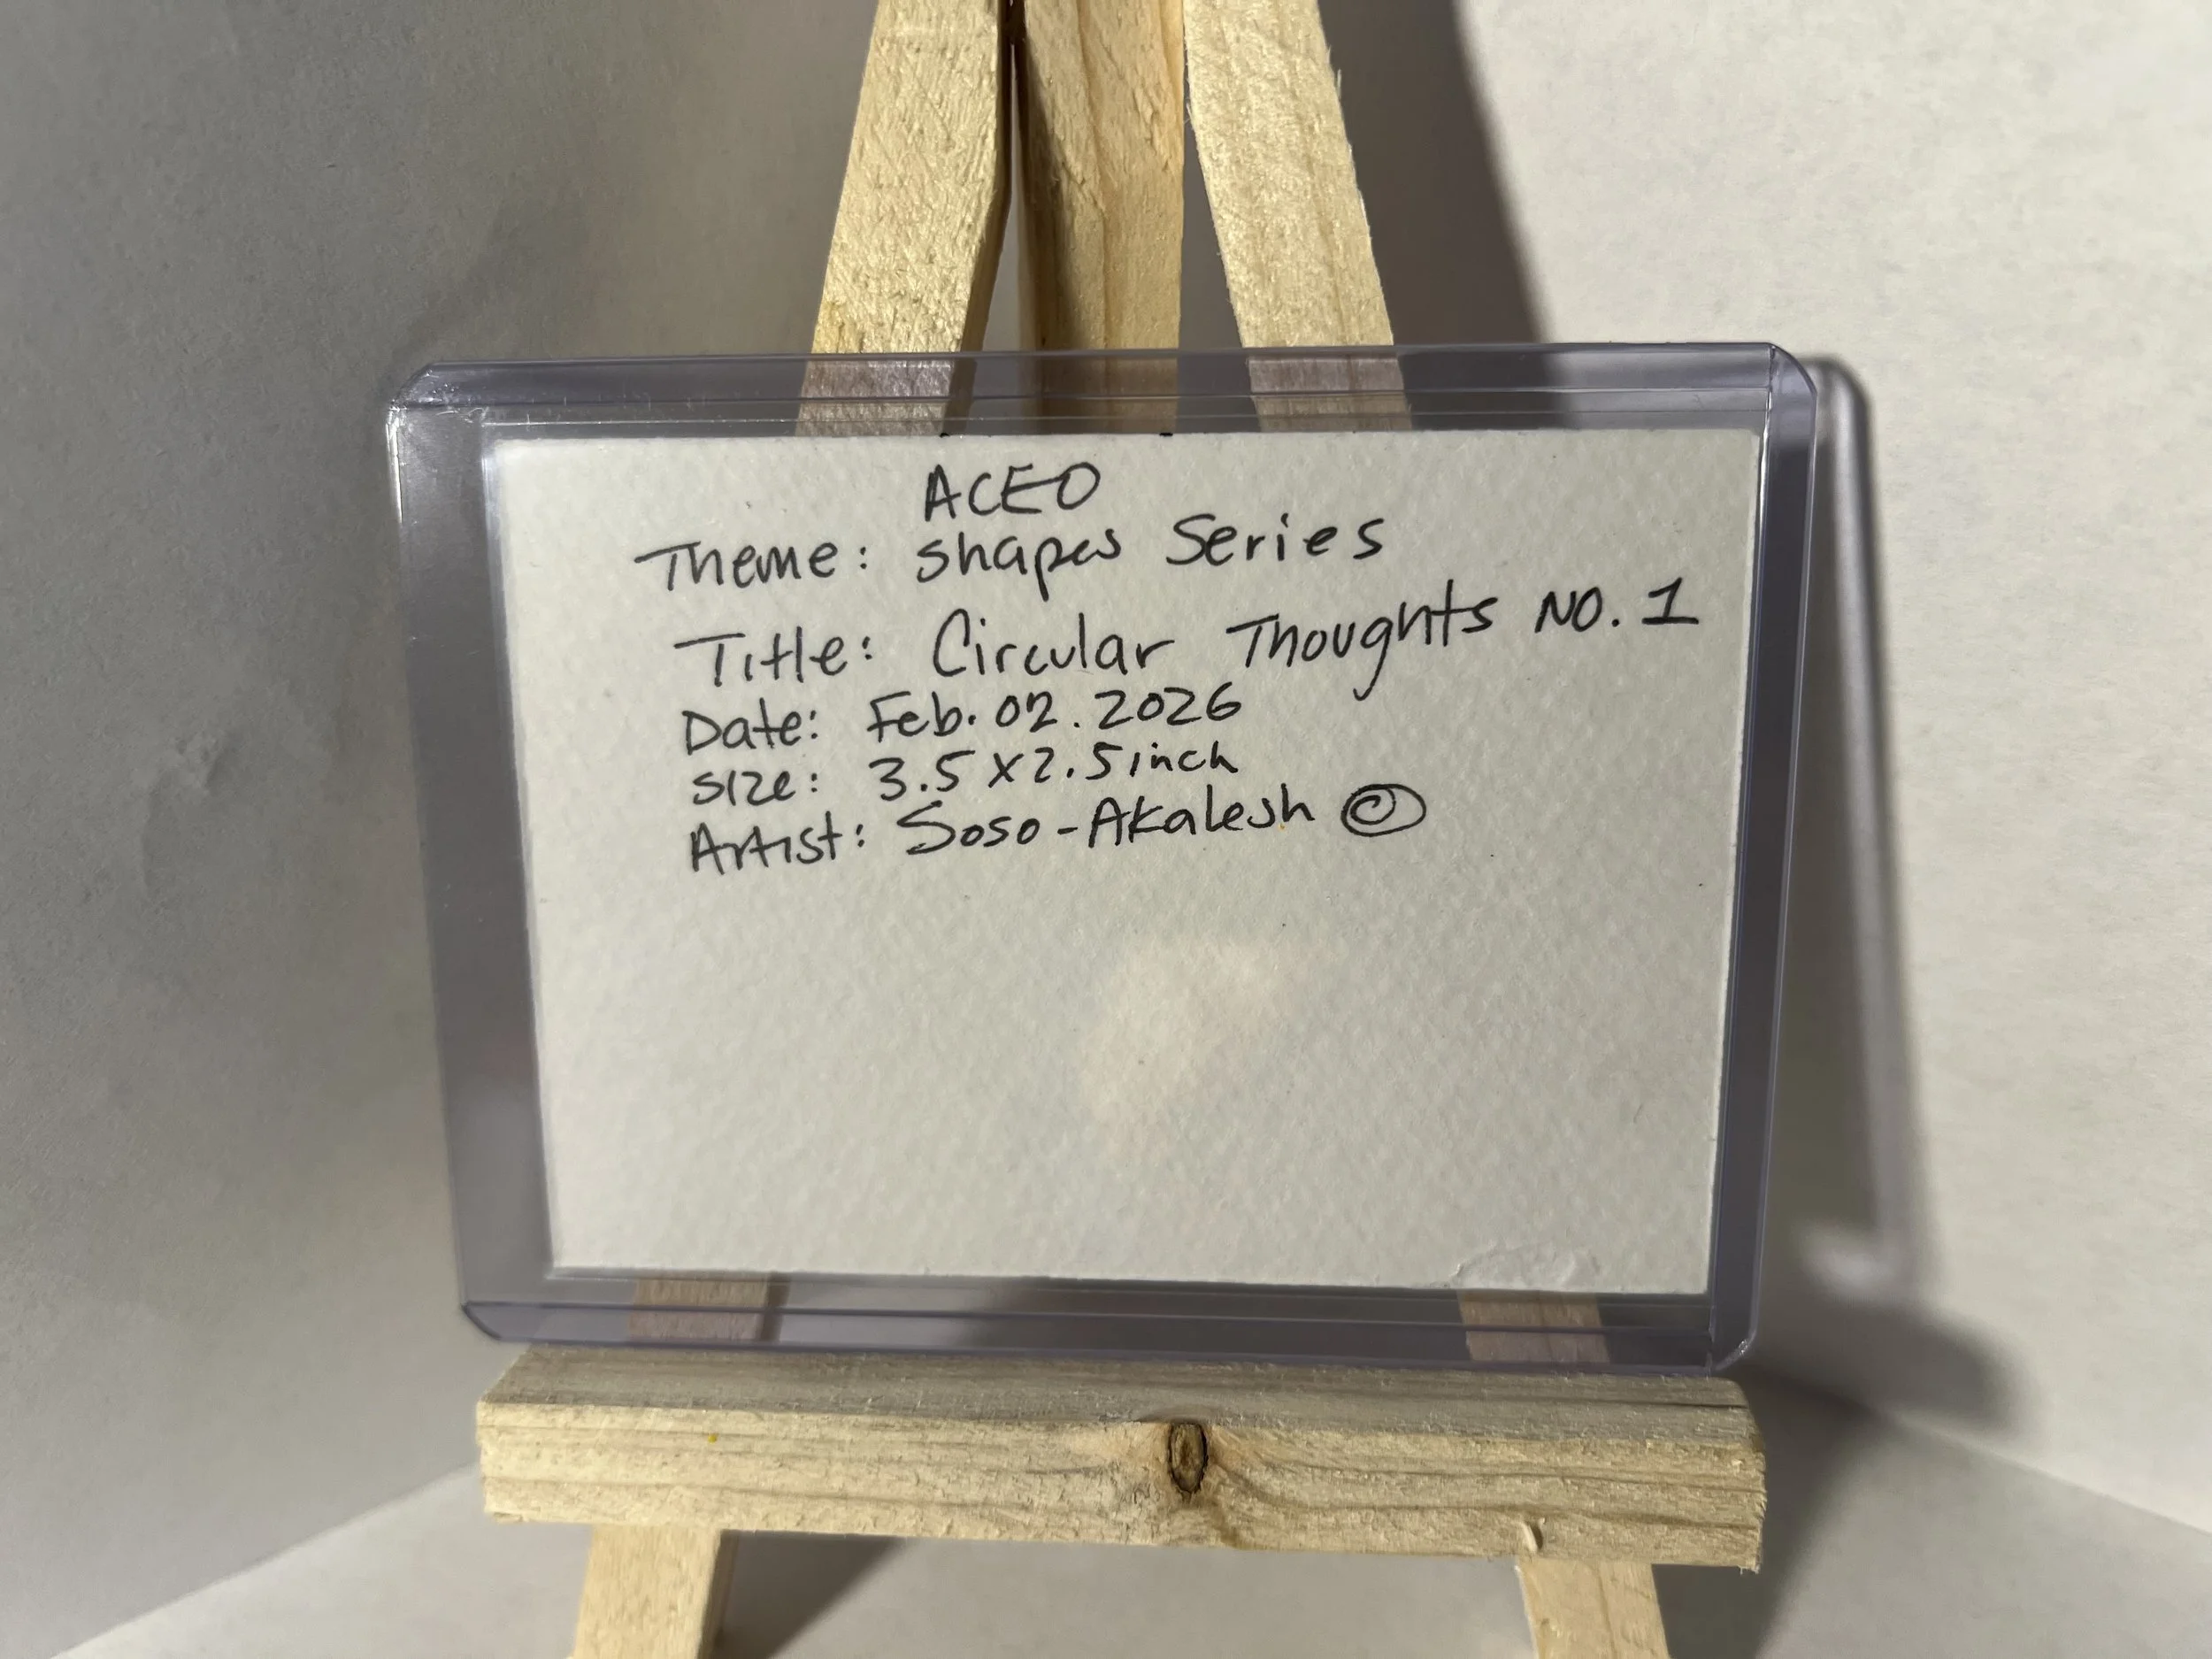 ACEO
Theme: Shapes Series
Title: Circular Thoughts NO. 1
Date: Feb. 02. 2026
Size: 3.5 x 2.5 inch
Artist: Soso-Akalesh ©